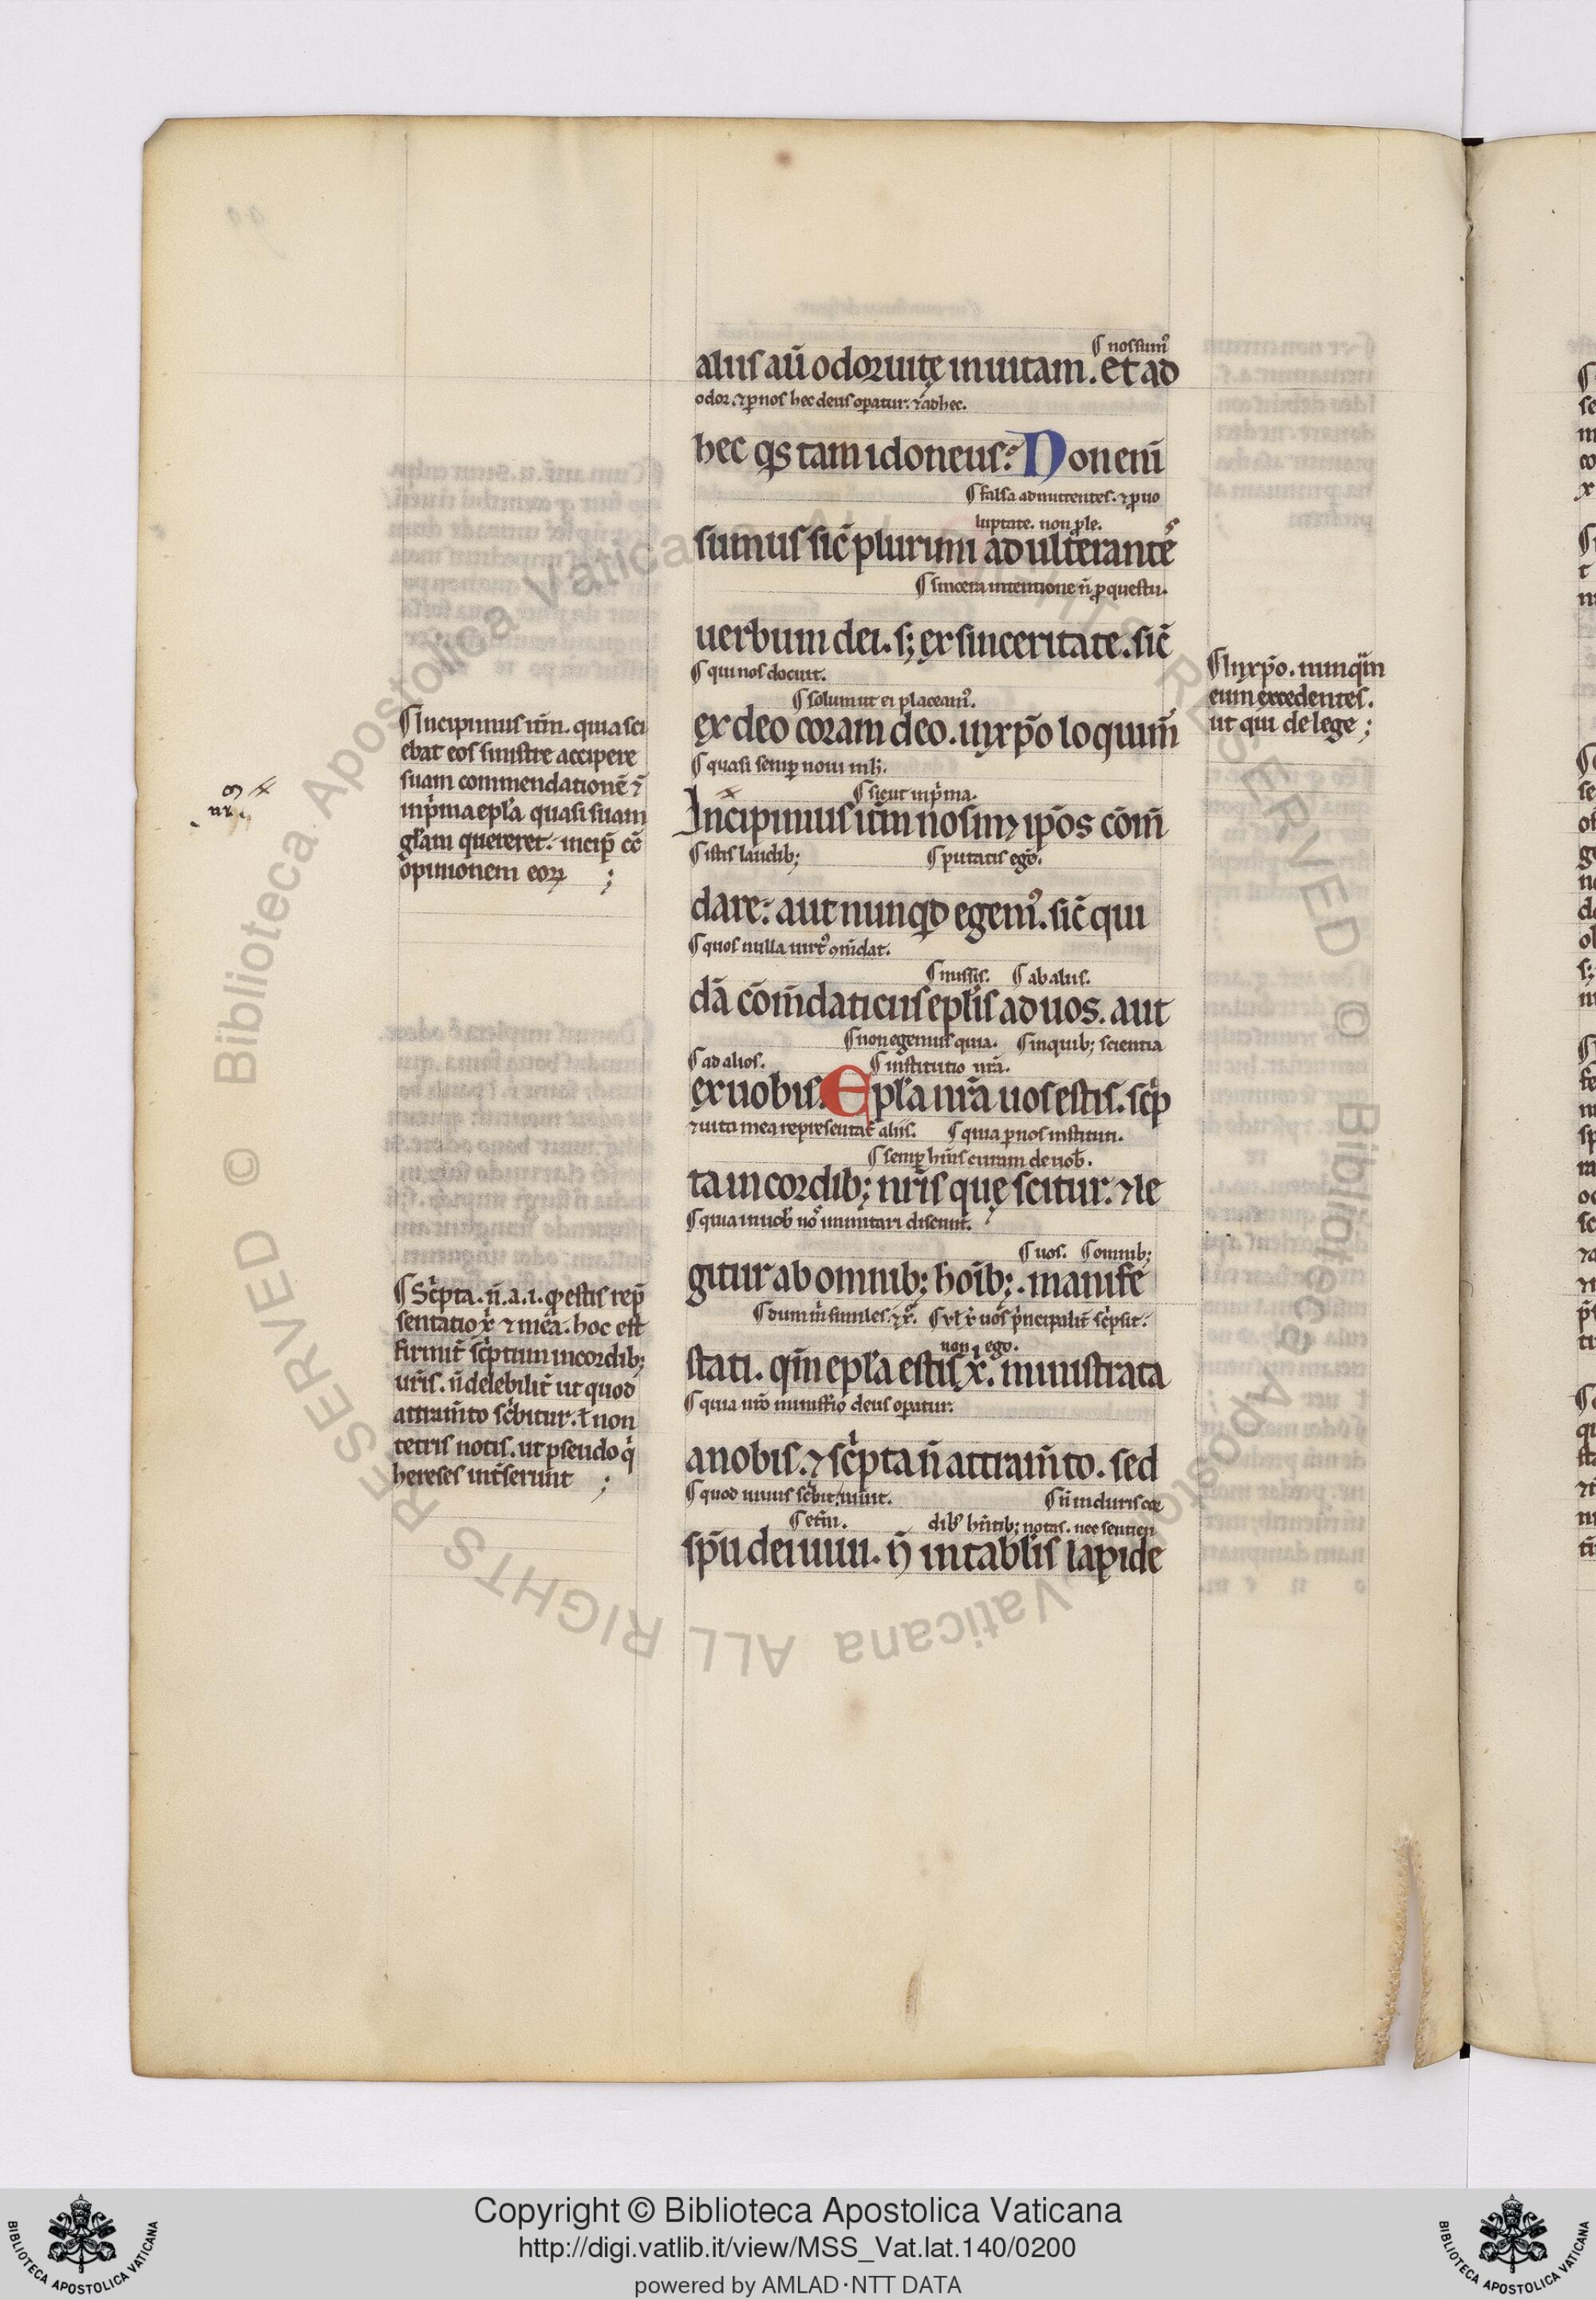 ¶ nos sum᷒
aliis aū odor uitę in uitam. et ad
odor. ⁊ p nos hec deus operatur. ⁊ adhec.
hec q̄s tam idoneus? Non eni̅
¶ falsa admittentes. ⁊ p uo
luptate. non ple.
sumus sic̄ plurimi adulterante s
¶ sincera intentione n̄ p questu.
uerbum dei. s; ex sinceritate. sic̄
¶ qui nos docuit.
¶ solum ut ei placeam᷒.
ex deo coram deo. in xp̄o loquim̄
¶ quasi semp noui
¶ sicut in p̄ma.
Incipimus it̄m nosmꝫ ip̄os com̄
¶ istis laudib;
¶ putatis ego.
dare? aut nunqd egem᷒. sic̄ qui
¶ quos nulla uirt᷒ ꝯm̄dat.
¶ missis. ¶ ab aliis.
dā com̄daticiis epl̄is ad uos. aut
¶ non egemus quia. ¶ in quib; scientia
¶ ad alios. ¶ institutio nr̄a.
ex uobis. Epl̄a nr̄a uos estis. sc̄p
⁊ uita mea representat̄ aliis. ¶ quia p nos instituti.
¶ semp hn̄s curam de uob̄.
ta in cordib; nr̄is quę scitur. ⁊ le
¶ quia in uob̄ imitari discunt.
¶ uos. ¶ omnib;
gitur ab omnib; hoib;. manife
¶ dum m̄ similes. ⁊ x̄. ¶ ut x̄ uos p̄ncipalit̄ sc̄psit.
non ego.
stati. qm̄ epl̄a estis x̄. ministrata
¶ quia nr̄o ministerio deus operatur.
a nobis. ⁊ sc̄pta n̄ atram̄to. sed
¶ quod uiuus sc̄bit.
¶ n̄ in duris cor
¶ et̄ni. dib᷒ hn̄tib; notas. nec sentien
sp̄u dei uiui. n̄ in tabl̄is lapide
¶ Incipimus it̄m. quia sci
ebat eos sinistre accipere
suam commendationē ⁊
in p̄ma epl̄a quasi suam
gl̄am quereret. incip̄ cō
opinionem eoꝝ ;
¶ Sc̄pta. n̄. a. i. q̄ estis rep̄
sentatio x̄ ⁊ mea. hoc est
firmit̄ sc̄ptum in cordib;
ur̄is. n̄ delebilit̄ ut quod
attram̄to sc̄bitur. ł non
tetris notis. ut pseudo q̄
hereses int̄serunt ;
¶ In xp̄o. nunq̄m
eum excedentes.
ut qui de lege ;
© Biblioteca Apostolica Vaticana ALL RIGHTS RESERVED
© Biblioteca Apostolica Vaticana ALL RIGHTS RESERVED
Copyright © Biblioteca Apostolica Vaticana
http://digi.vatlib.it/view/MSS_Vat.lat.140/0200
powered by AMLAD·NTT DATA
BIBLIOTECA APOSTOLICA VATICANA
BIBLIOTECA APOSTOLICA VATICANA